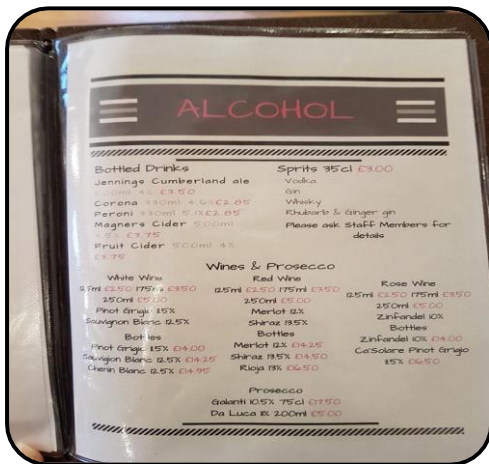 ALCOHOL
Bottled Drinks
Jennings Cumberland ale
500ml 4% £3.50
Corona 330ml 4.6% £2.85
Peroni 330ml 5.1% £2.85
Magners Cider 500ml
4.5% £3.75
Fruit Cider 500ml 4%
£3.75
Sprits 35cl £3.00
Vodka
Gin
Whisky
Rhubarb & Ginger gin
Please ask Staff Members for
details
Wines & Prosecco
White Wine
125ml £2.50 175ml £3.50
250ml £5.00
Pinot Grigio 11.5%
Sauvignon Blanc 12.5%
Bottles
Pinot Grigio 11.5% £14.00
Sauvignon Blanc 12.5% £14.25
Chenin Blanc 12.5% £14.95
Red Wine
125ml £2.50 175ml £3.50
250ml £5.00
Merlot 12%
Shiraz 13.5%
Bottles
Merlot 12% £14.25
Shiraz 13.5% £14.50
Rioja 13% £16.50
Rose Wine
125ml £2.50 175ml £3.50
250ml £5.00
Zinfandel 10%
Bottles
Zinfandel 10% £14.00
Ca'Solare Pinot Grigio
11.5% £16.50
Prosecco
Galanti 10.5% 75cl £17.50
Da Luca 11% 200ml £5.00